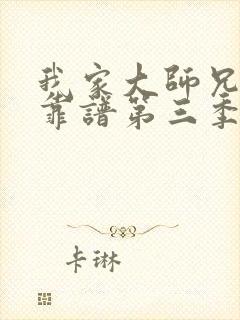 我家大師兄
靠譜第三季
卡琳